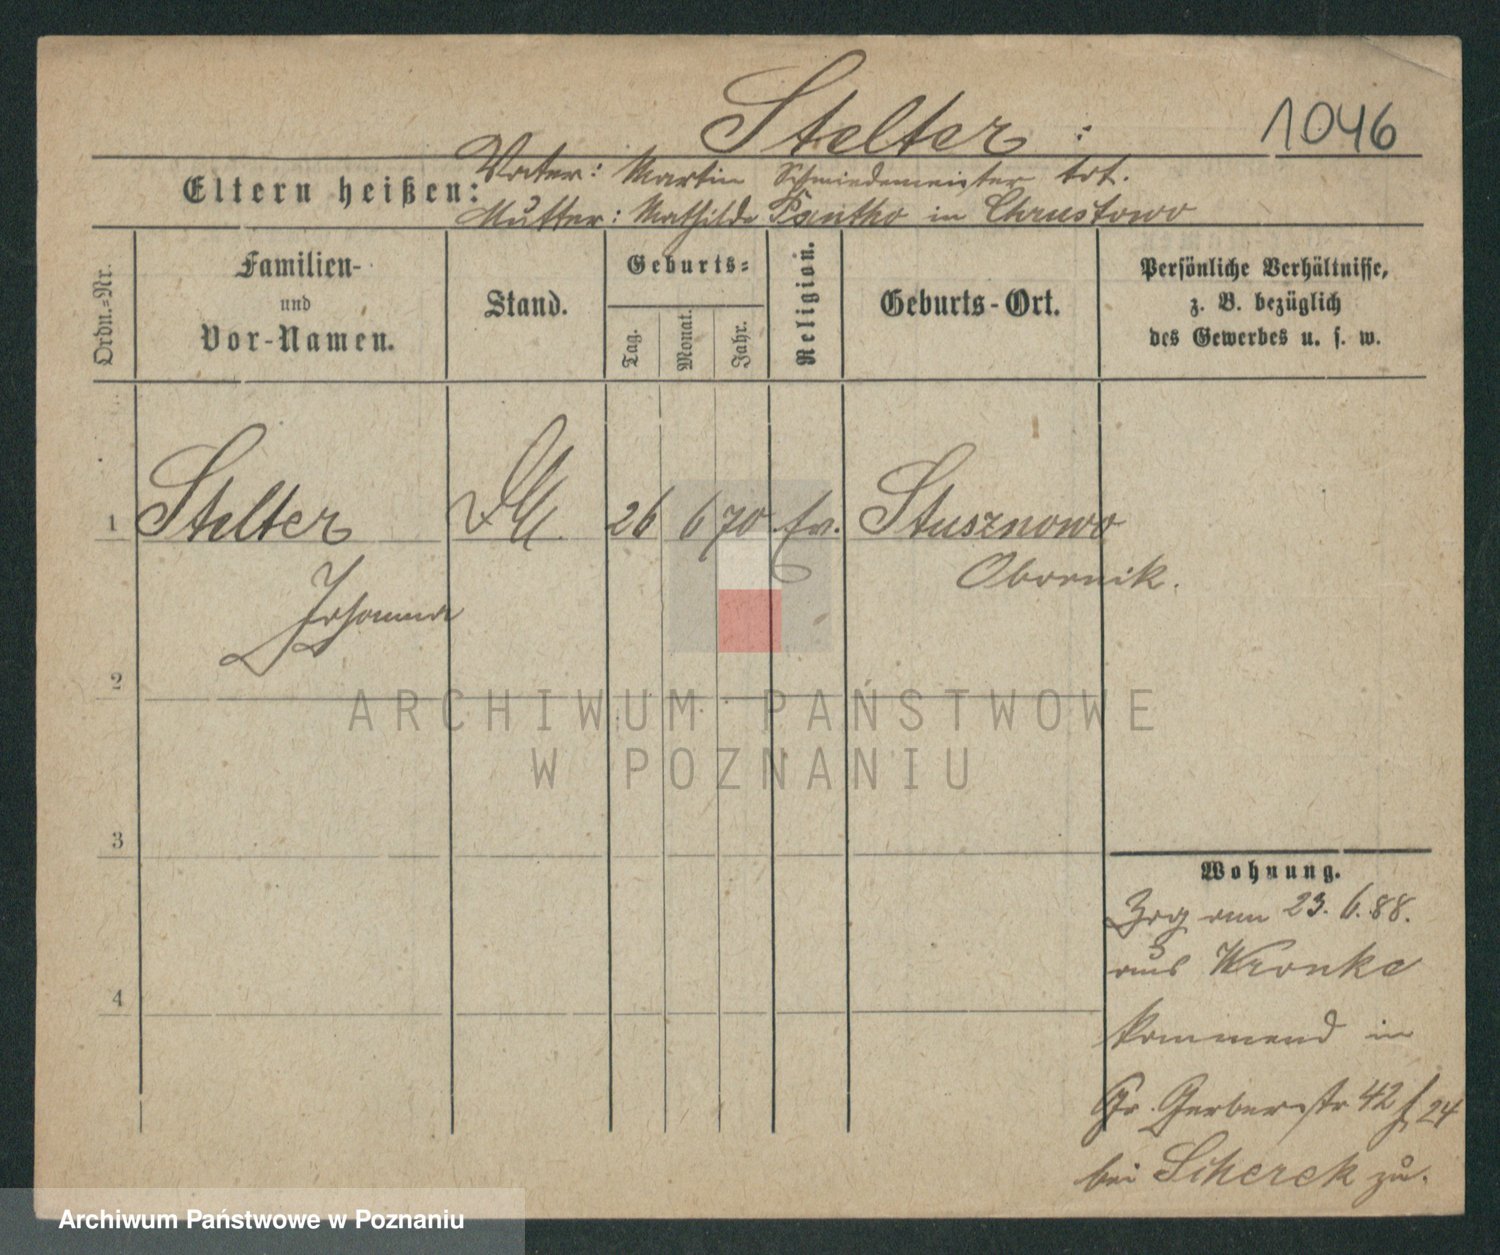 Stelter:
1046
Eltern heißen:
Vater: Martin Schmiedemeister tot.
Mutter: Mathilde Pantho in Chrustowo
Ordn.-Nr.
Familien-
und
Vor-Namen.
Stand.
Geburts-
Tag.
Monat.
Jahr.
Religion.
Geburts-Ort.
Persönliche Verhältnisse,
z. B. bezüglich
des Gewerbes u. s. w.
1 Stelter 26 6 70 Ev. Stusznowo
Johanna Obornik.
2
3
4
Wohnung.
Zrg am 23. 6. 88.
aus Wronke
kommend in
Gr. Gerberstr 42 f 24
bei Scherek zu.
ARCHIWUM PAŃSTWOWE
W POZNANIU
Archiwum Państwowe w Poznaniu